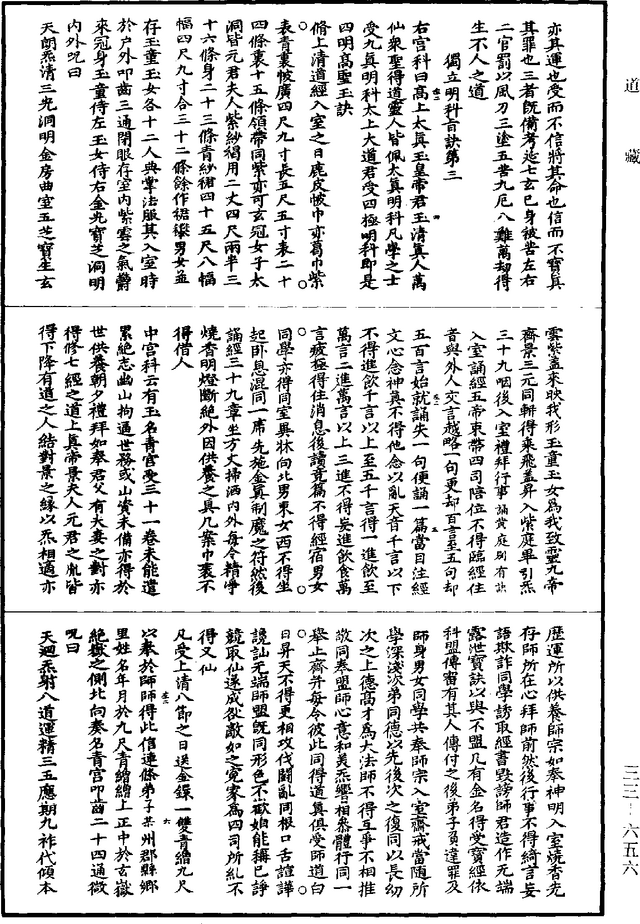 亦其運也受而不信將其命也信而不寶真
其罪也三者旣備考延七玄已身被苦左右
二官罰以風刀三塗五苦九厄八難萬劫得
生不人之道
獨立明科百訣第三
右宮科曰高上太真玉皇帝君玉清真人萬
仙衆聖得道靈人皆佩太真明科凡學之士
受九真明科太上大道君受四極明科即是
四明高聖玉訣
脩上清道經入室之日鹿皮帔巾亦葛巾紫
表青裏帔廣四尺九寸長五尺五寸表二十
四條裏十五條領帶同紫亦可玄冠女子太
洞皆元君夫人紫紗褐用二丈四尺兩半三
十六條身二十三條青紗裙四十五尺八幅
幅四尺九寸合三十二條餘作裙攀男女並
存玉童玉女各十二人典章法服其入室時
於戶外叩齒三通閉眼存室內紫雲之氣鬱
來冠身玉童侍左玉女侍右金光寶芝洞明
內外呪曰
天朗炁清三光洞明金房曲室五芝寶生玄
雲紫蓋來映我形玉童玉女爲我致靈九帝
齊景三元同軿得乘飛蓋昇入紫庭畢引炁
三十九咽後入室禮拜行事誦黃庭別有訣
入室誦經五帝束帶四司陪位不得臨經住
音與外人交言越略一句更却百言至五句却
五百言始就誦失一句便誦一篇當目注經
文心念神真不得他念以亂天音千言以下
不得進飲千言以上至五千言得一進飲至
萬言二進萬言以上三進不得妄進飲食萬
言疲極得住消息後讀竟篇不得經宿男女
同學亦得同室異牀向北男東女西不得坐
起卧息混同一席先施金真制魔之符然後
誦經三十九章坐方丈掃洒內外每令精淨
燒香明燈斷絶外因供養之具几案巾裹不
得借人
中宮科云有玉名青宮受三十一卷未能遣
累絶志幽山拘逼世務或山資未備亦得於
世供養朝夕禮拜如奉君父有夫妻之對亦
得修七經之道上真帝景夫人元君之胤皆
得下降有道之人結對景之緣以炁相適亦
歷運所以供養師宗如奉神明入室燒香先
存師所在心拜師前然後行事不得綺言妄
語欺詐同學誘取經書毀謗師君造作无端
露泄寶訣以與不盟凡有金名得受寶經依
科盟傳審有其人傳付之後弟子負違罪及
師身男女同學共奉師宗入室齋戒當隨所
學深淺次第同德以先後次之復同以長幼
次之上德高才爲大法師不得互爭不相推
敬同奉盟師心意和美炁響相恭體行同一
舉止齊并每令彼此同得道真俱受師道白
日昇天不得更相攻伐鬪亂同根口舌諠譁
讒訕无端師盟旣同形色不歡妬能稱已諍
競取仙遂成讎敵如之冤家爲四司所糺不
得又仙
凡受上清八節之日送金鐶一雙青繒九尺
以奉於師師得此信連條弟子某州郡縣鄉
里姓名年月於九尺青繒上正中於玄嶽
絶巘之側北向奏名青宮叩齒二十四通微
呪曰
天迴炁射八道運精三五應期九祚代傾本
道
藏
三三－六五六